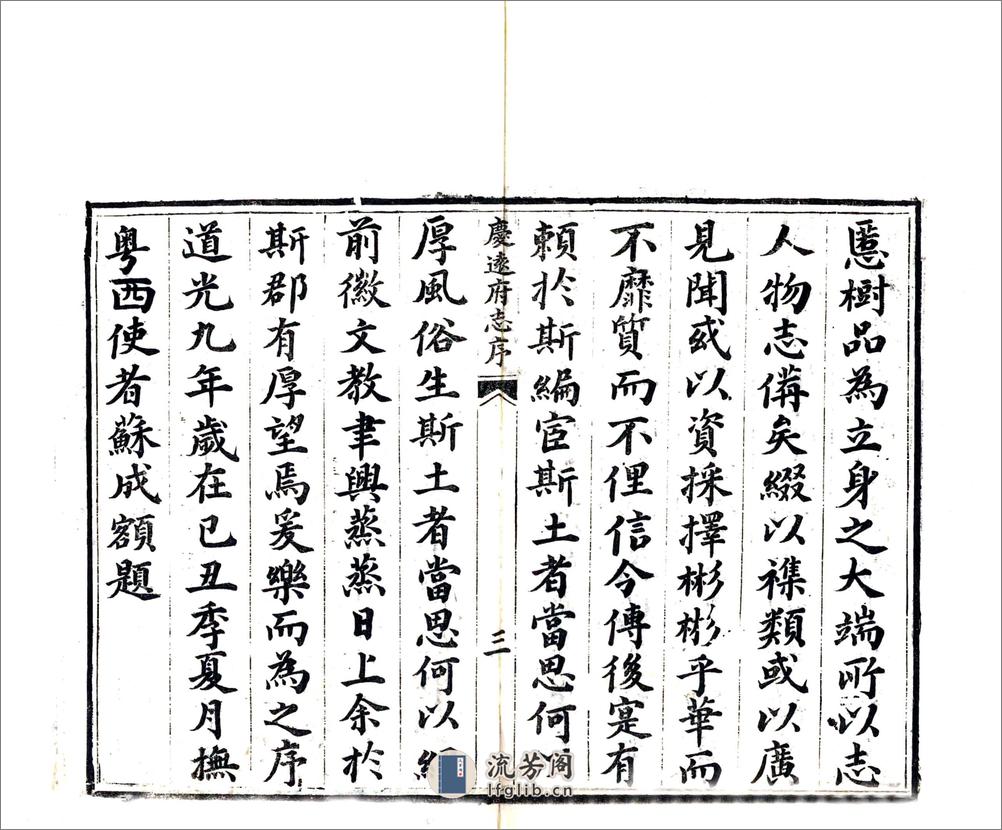 慝樹品為立身之大端所以志
人物志備矣綴以襍類或以廣
見聞或以資採擇彬彬乎華而
不靡質而不俚信今傳後寔有
賴於斯編宦斯土者當思何
慶遠府志序
三
厚風俗生斯土者當思何以
前徽文教聿興蒸蒸日上余於
斯郡有厚望焉爰樂而為之序
道光九年歲在己丑季夏月撫
粤西使者蘇成額題
流芳阁
lfglib.cn